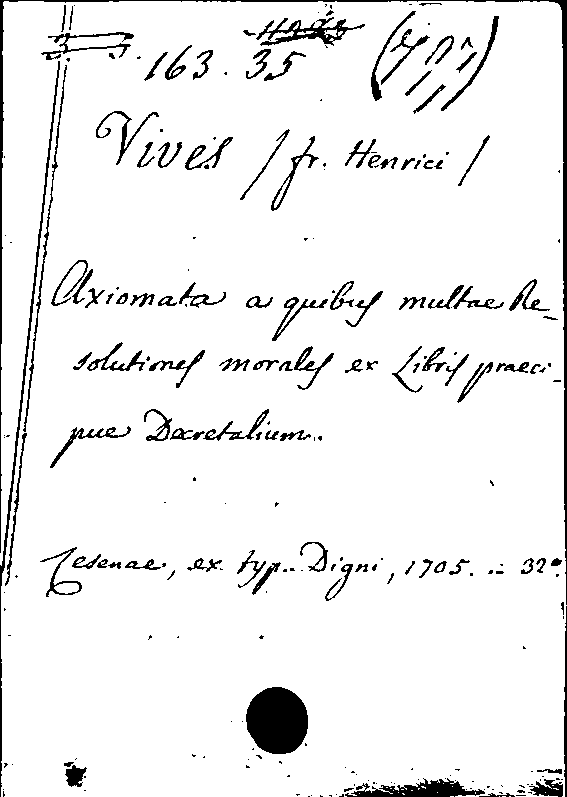 163.35
Vives / fr. Henrici /
Axiomata a quibus multae Re-
solutiones morales ex Libris praeci-
pue Decretalium.
Cesenae, ex typ. Digni, 1705. .. 32°.